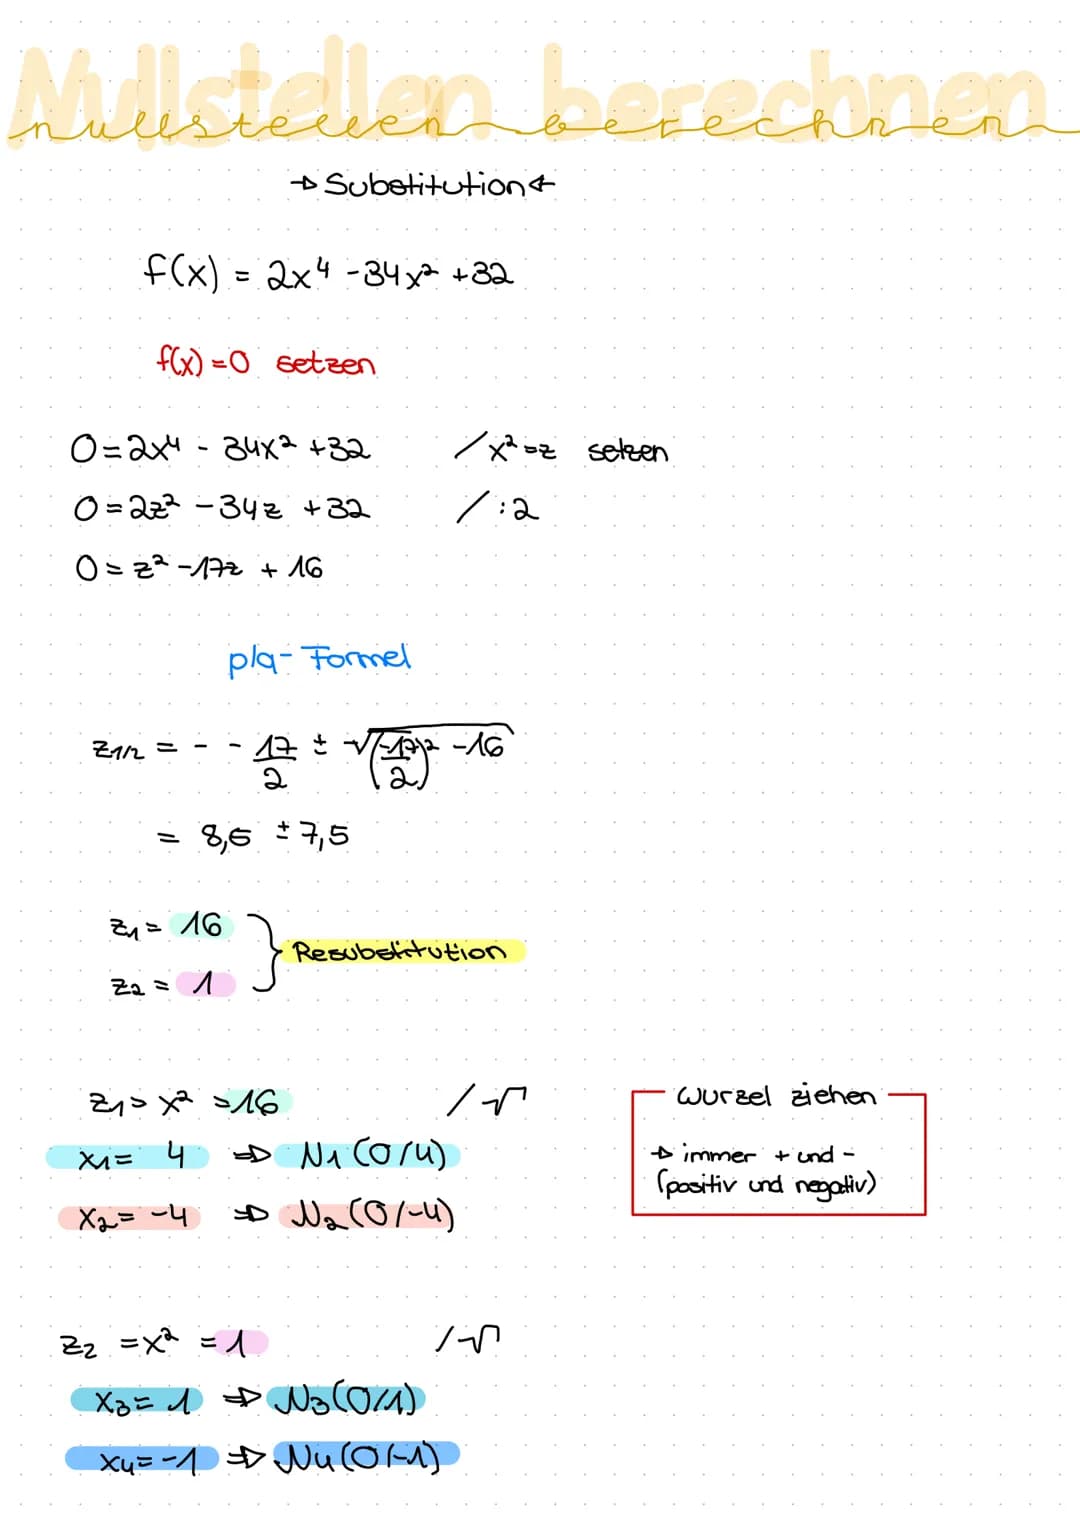 Nullstellen berechnen
nullstellen berechnen
→ Substitution ←
f(x) = 2x⁴ - 34x² + 32
f(x) = 0 setzen
0 = 2x⁴ - 34x² + 32 / x² = z setzen
0 = 2z² - 34z + 32 / : 2
0 = z² - 17z + 16
p/q - Formel
z1/2 = - - 17/2 ± √((-17/2)² - 16)
= 8,5 ± 7,5
z₁ = 16
Resubstitution
z₂ = 1
z₁ = x² = 16 / √
x₁ = 4 ⇒ N₁ (0/4)
x₂ = -4 ⇒ N₂ (0/-4)
Wurzel ziehen
→ immer + und -
(positiv und negativ)
z₂ = x² = 1 / √
x₃ = 1 ⇒ N₃ (0/1)
x₄ = -1 ⇒ N₄ (0/-1)